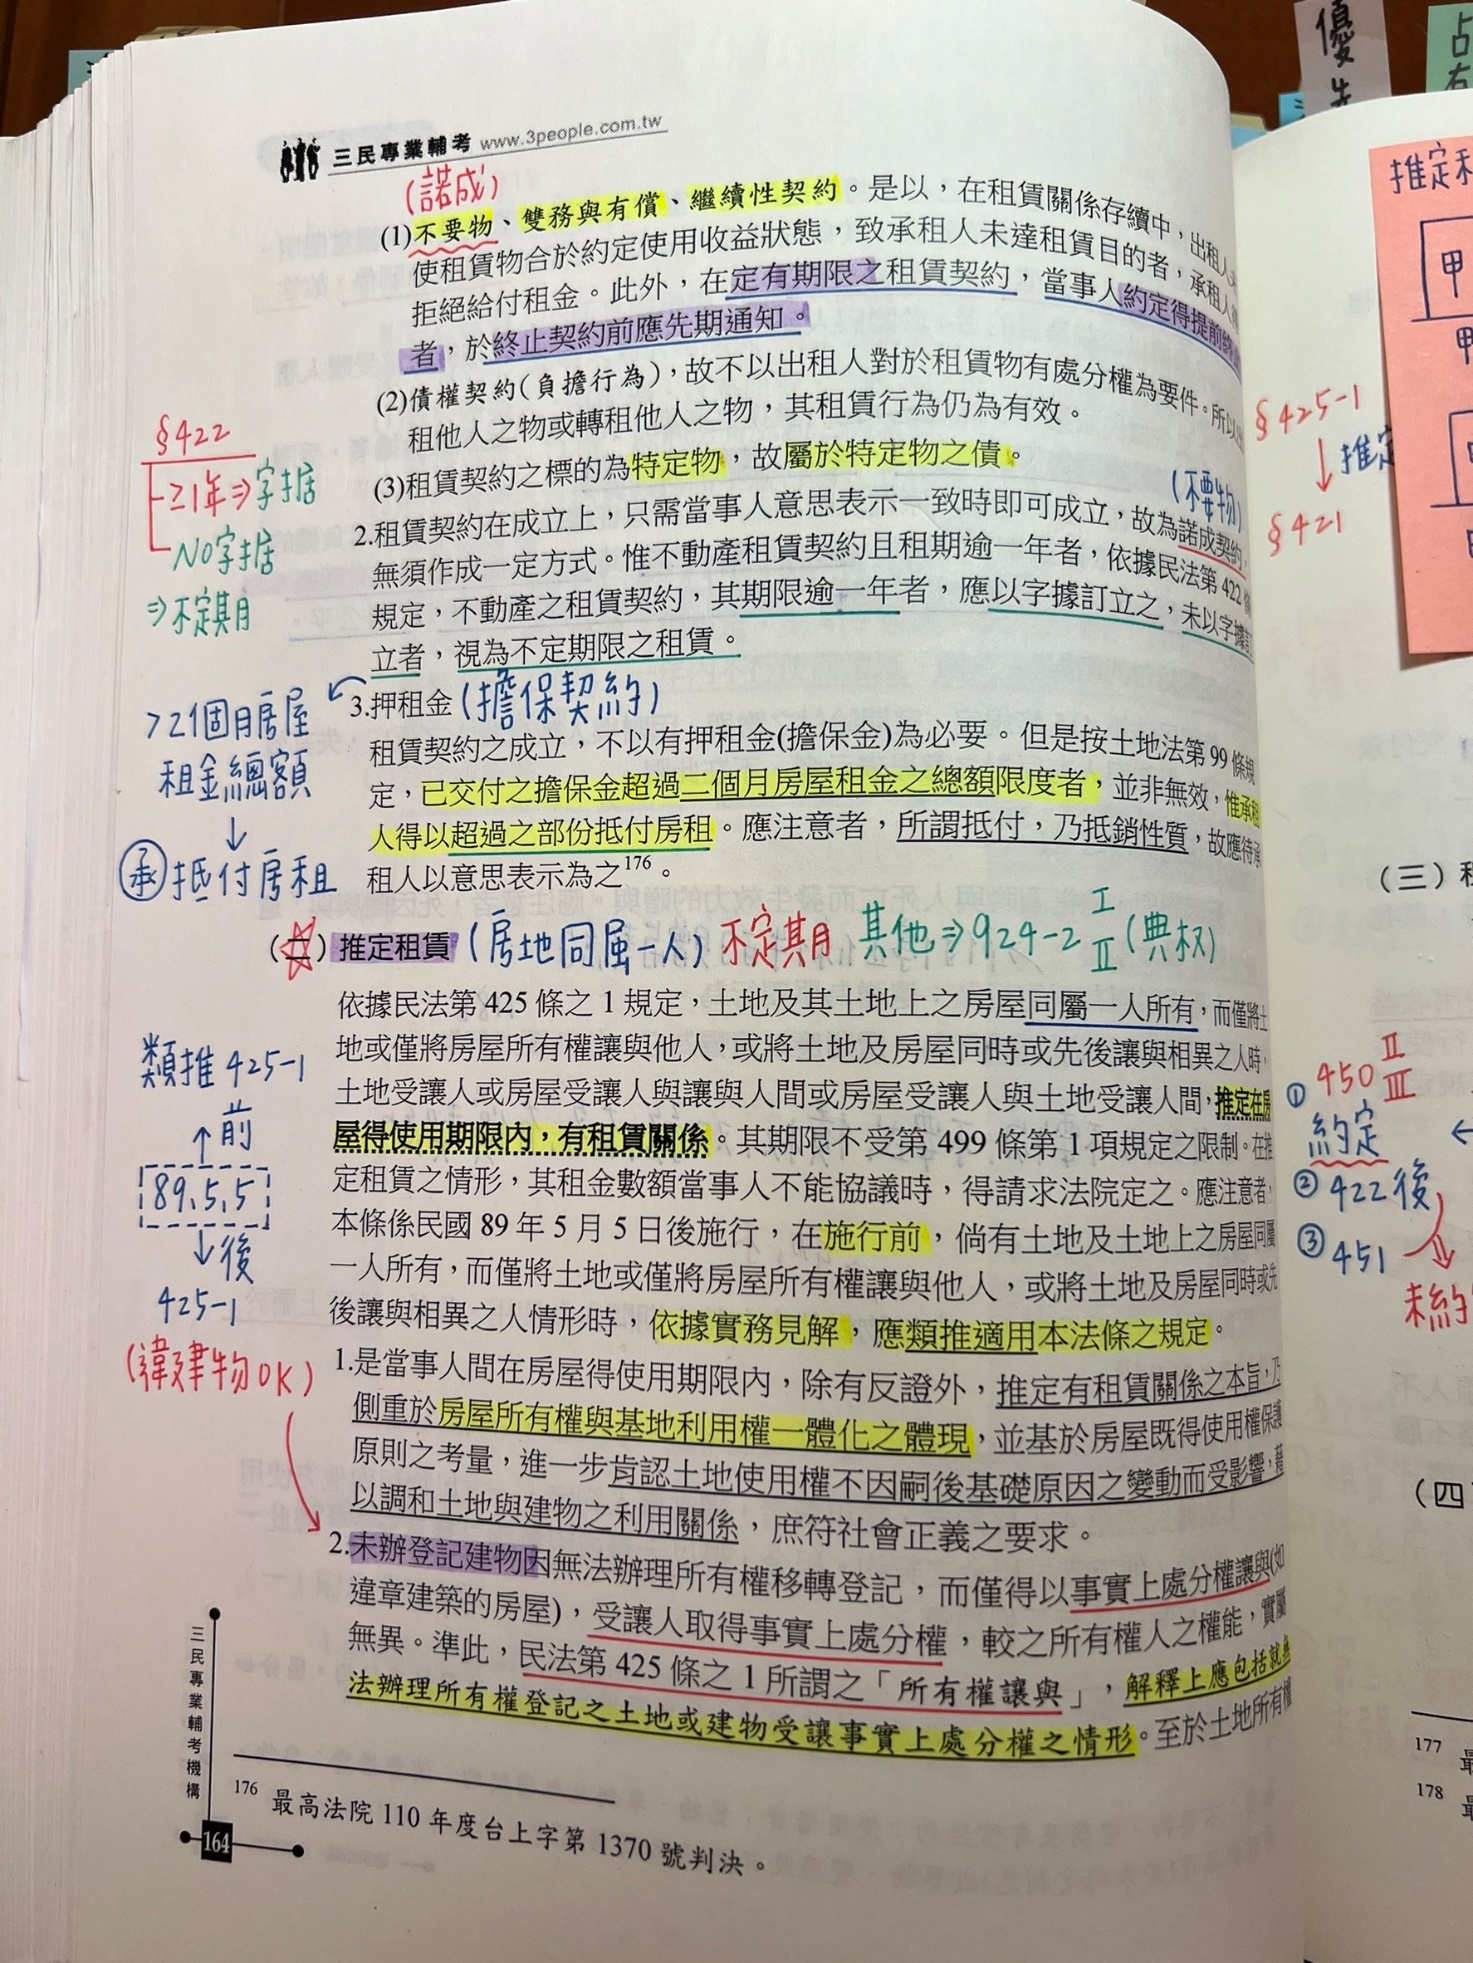 優先
占有
三民專業輔考 www.3people.com.tw
(諾成)
(1)不要物、雙務與有償、繼續性契約。是以，在租賃關係存續中，出租人
使租賃物合於約定使用收益狀態，致承租人未達租賃目的者，承租人
拒絕給付租金。此外，在定有期限之租賃契約，當事人約定得提前
者，於終止契約前應先期通知。
(2)債權契約(負擔行為)，故不以出租人對於租賃物有處分權為要件。所以
租他人之物或轉租他人之物，其租賃行為仍為有效。
(3)租賃契約之標的為特定物，故屬於特定物之債。
(不要物)
2.租賃契約在成立上，只需當事人意思表示一致時即可成立，故為諾成契約，
無須作成一定方式。惟不動產租賃契約且租期逾一年者，依據民法第 422 條
規定，不動產之租賃契約，其期限逾一年者，應以字據訂立之，未以字據訂
立者，視為不定期限之租賃。
3.押租金(擔保契約)
租賃契約之成立，不以有押租金(擔保金)為必要。但是按土地法第 99 條規
定，已交付之擔保金超過二個月房屋租金之總額限度者，並非無效，惟承租
人得以超過之部份抵付房租。應注意者，所謂抵付，乃抵銷性質，故應待承
租人以意思表示為之176。
(二)推定租賃(房地同屬一人)不定期 其他⇒924-2 I II (典权)
依據民法第 425 條之 1 規定，土地及其土地上之房屋同屬一人所有，而僅將土
地或僅將房屋所有權讓與他人，或將土地及房屋同時或先後讓與相異之人時，
土地受讓人或房屋受讓人與讓與人間或房屋受讓人與土地受讓人間，推定在房
屋得使用期限內，有租賃關係。其期限不受第 499 條第 1 項規定之限制。在推
定租賃之情形，其租金數額當事人不能協議時，得請求法院定之。應注意者，
本條係民國 89 年 5 月 5 日後施行，在施行前，倘有土地及土地上之房屋同屬
一人所有，而僅將土地或僅將房屋所有權讓與他人，或將土地及房屋同時或先
後讓與相異之人情形時，依據實務見解，應類推適用本法條之規定。
1.是當事人間在房屋得使用期限內，除有反證外，推定有租賃關係之本旨，乃
側重於房屋所有權與基地利用權一體化之體現，並基於房屋既得使用權保護
原則之考量，進一步肯認土地使用權不因嗣後基礎原因之變動而受影響，藉
以調和土地與建物之利用關係，庶符社會正義之要求。
2.未辦登記建物因無法辦理所有權移轉登記，而僅得以事實上處分權讓與(如
違章建築的房屋)，受讓人取得事實上處分權，較之所有權人之權能，實屬
無異。準此，民法第 425 條之 1 所謂之「所有權讓與」，解釋上應包括就無
法辦理所有權登記之土地或建物受讓事實上處分權之情形。至於土地所有權
176 最高法院 110 年度台上字第 1370 號判決。
三民專業輔考機構
164
§422
≥1年⇒字据
NO字据
⇒不定期
>2個月房屋
租金總額
↓
承 抵付房租
類推 425-1
↑前
89.5.5
↓後
425-1
(違建物OK)
推定
甲
甲
§425-1
↓推定
§421
(三)
① 450 II III
約定
② 422後
③ 451
未約
(四
177
178